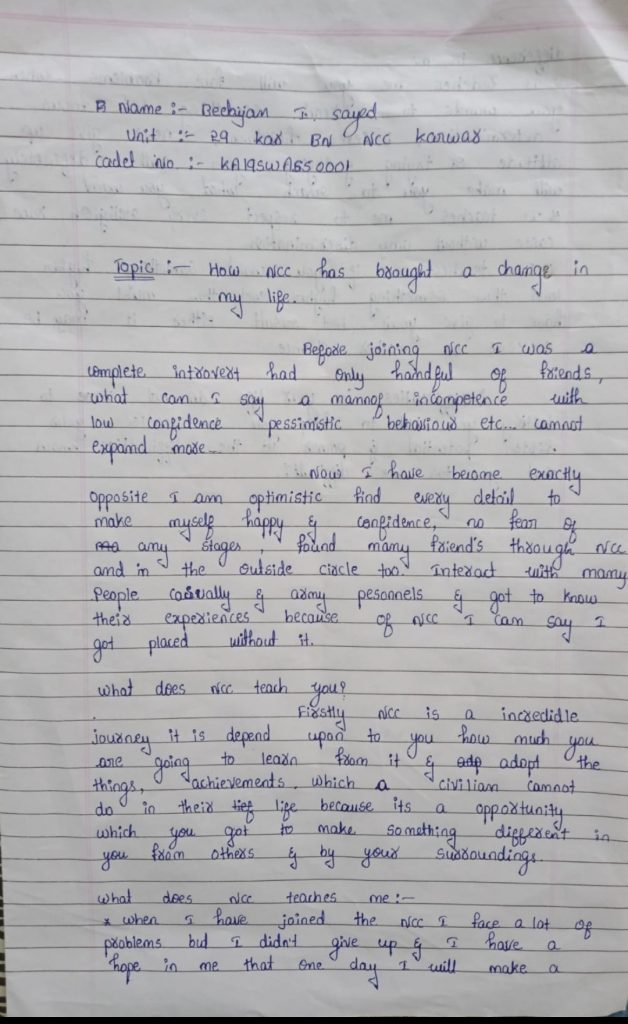 Name :- Beebijan I sayed
Unit :- 29 kar BN NCC karwar
Cadet No :- KA19SWA550001
Topic :- How NCC has brought a change in
my life.
Before joining NCC I was a
complete introvert had only handful of friends,
what can I say a mannof incompetence with
low confidence pessimistic behaviour etc... cannot
expand more...
Now I have become exactly
opposite I am optimistic find every detail to
make myself happy & confidence, no fear of
any stages, found many friend's through NCC
and in the outside circle too. Interact with many
People casually & army pesonnels & got to know
their experiences because of NCC I can say I
got placed without it.
what does NCC teach you?
Firstly NCC is a incredidle
journey it is depend upon to you how much you
are going to learn from it & adopt the
things, achievements which a civilian cannot
do in their life because its a opportunity
which you got to make something different in
you from others & by your surroundings.
what does NCC teaches me :-
* when I have joined the NCC I face a lot of
problems but I didn't give up & I have a
hope in me that one day I will make a